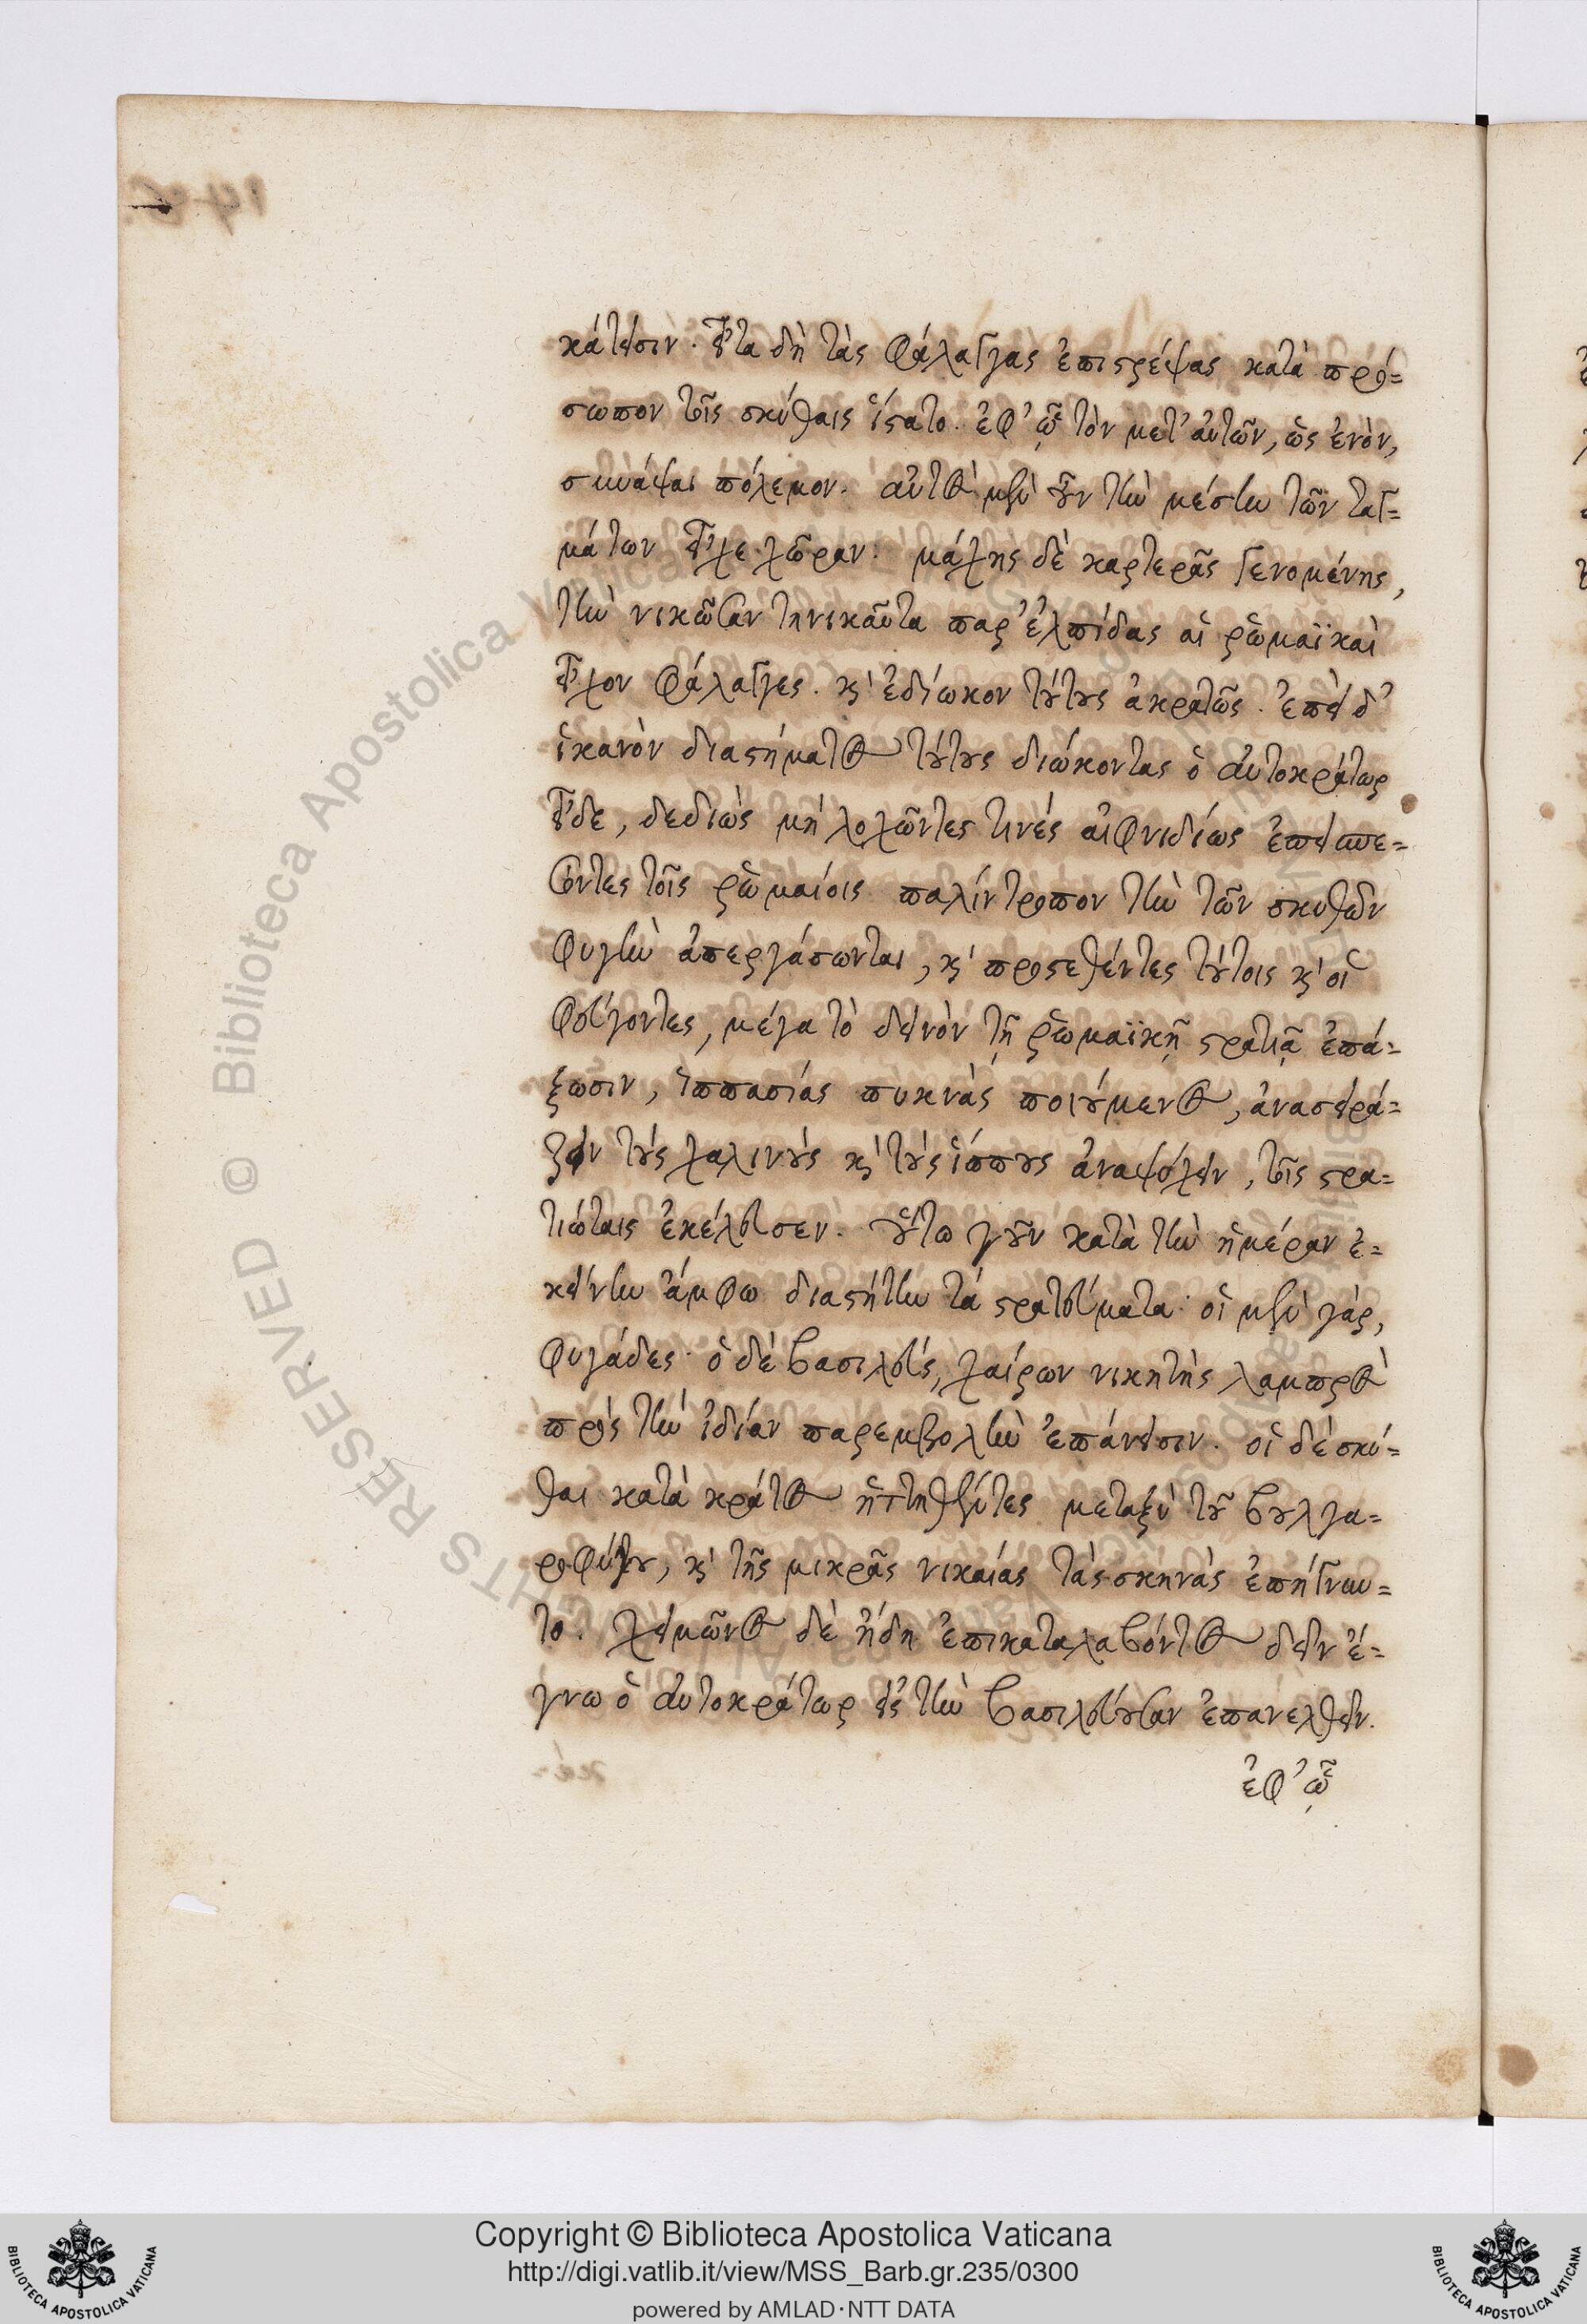 κάτεισιν. εἶτα δὴ τὰς φάλαγγας ἐπιστρέψας κατὰ πρό=
σωπον τοῖς σκύθαις ἵστατο. ἐφ' ᾧ τὸν μετ' αὐτῶν, ὡς ἐνὸν,
συνάψαι πόλεμον. αὐτὸς μὲν οὖν τὴν μέσην τῶν ταγ=
μάτων εἶχε χῶραν. μάχης δὲ καρτερᾶς γενομένης,
τὴν νικῶσαν τηνικαῦτα παρ' ἐλπίδας αἱ ῥωμαϊκαὶ
εἶχον φάλαγγες. κ' ἐδίωκον τούτους ἀκρατῶς. ἐπεὶ δ'
ἱκανὸν διαστήματος τούτους διώκοντας ὁ αὐτοκράτωρ
εἶδε, δεδιὼς μή λοχῶντες τινές αἰφνιδίως ἐπεισπε=
σόντες τοῖς ῥωμαίοις παλίντροπον τὴν τῶν σκυθῶν
φυγὴν ἀπεργάσωνται, κ' προσεθέντες τούτοις κ' οἱ
φεύγοντες, μέγα τὸ δεινὸν τῇ ῥωμαϊκῇ στρατιᾷ ἐπά=
ξωσιν, ἱππασίας πυκνὰς ποιούμενος, ἀνασειρά=
ζειν τοὺς χαλινοὺς κ' τοὺς ἵππους ἀναψύχειν, τοῖς στρα=
τιώταις ἐκέλευσεν. οὕτω γοῦν κατὰ τὴν ἡμέραν ἐ=
κείνην ἄμφω διαστήτην τά στρατεύματα. οἱ μὲν γάρ,
φυγάδες. ὁ δὲ βασιλεύς, χαίρων νικητὴς λαμπρὸς
πρὸς τὴν ἰδίαν παρεμβολὴν ἐπάνεισιν. οἱ δὲ σκύ=
θαι κατὰ κράτος ἡττηθέντες μεταξὺ τοῦ βουλγα=
ροφύγου, κ' τῆς μικρᾶς νικαίας τὰς σκηνὰς ἐπήγνυν=
το. χειμῶνος δὲ ἤδη ἐπικαταλαβόντος δεῖν ἔ=
γνω ὁ αὐτοκράτωρ εἰς τὴν βασιλεύουσαν ἐπανελθεῖν.
ἐφ' ᾧ
Copyright © Biblioteca Apostolica Vaticana
http://digi.vatlib.it/view/MSS_Barb.gr.235/0300
powered by AMLAD·NTT DATA